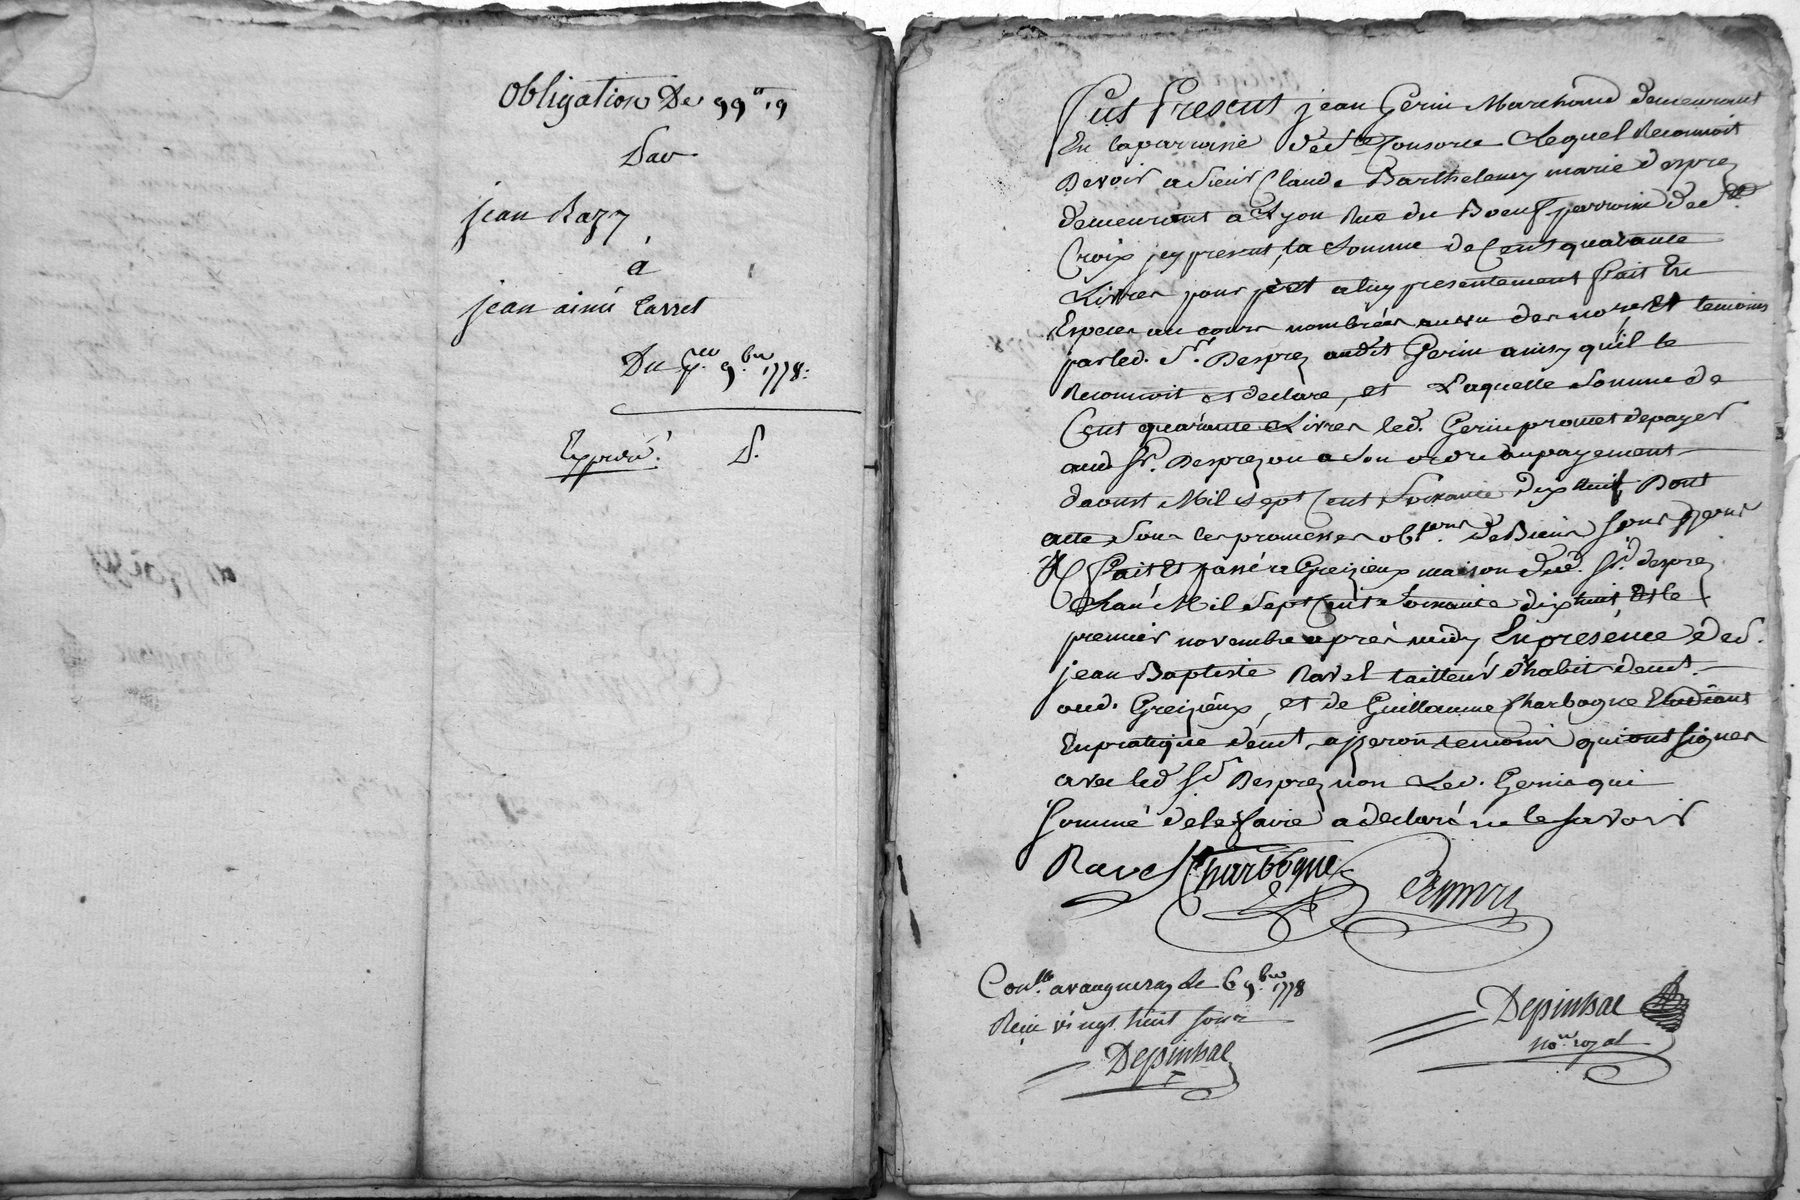 obligation De 99ᵗᵗ 19
Par
jean Razy
à
jean aimé Carret
Du pʳ. 9.ᵇʳᵉ 1778:
Expedié. S.
Fut Present jean Gerin Marchand demeurant
En laparroisse de Sᵗᵉ Consorce Lequel Reconnoit
Devoir a Sieur Claude Barthelemy marie desprez
demeurant a Lyon Rue du Boeuf parroisse de Sᵗᵉ
Croix jcy present, la Somme de Cent quarante
Livres pour prêt a luy presentement fait En
Especes au cours nombrées au vu des noʳᵉ Et temoins
par led. Sʳ. Desprez audit Gerin ainsy qu'il le
Reconnoit et declare, et Laquelle Somme de
Cent quarante Livres led. Gerin promet de payer
aud Sʳ. Desprez ou a Son ordre au payement
daoust Mil sept Cent Soixante dix huit, Dont
acte Sous les promesses oblᵒⁿˢ. de Biens
Fait Et passé a Greizieux maison dud. Sʳ. desprez
Lhan Mil Sept Cent Soixante dix huit, Et le
premier novembre après midy En presence de
jean Baptiste Ravel tailleur d'habit demt
aud. Greizieux, et de Guillaume Charbogne Etudiant
En pratique demt, temoins qui ont Signer
avec led Sʳ Desprez non Led. Gerin qui
Sommé de le faire a declaré ne le savoir
Ravel Charbogne
Conˡˡᵉ a vaugneray Le 6 9.ᵇʳᵉ 1778
Reçu vingt huit sous
Depinhac
Depinhac
noʳᵉ royal